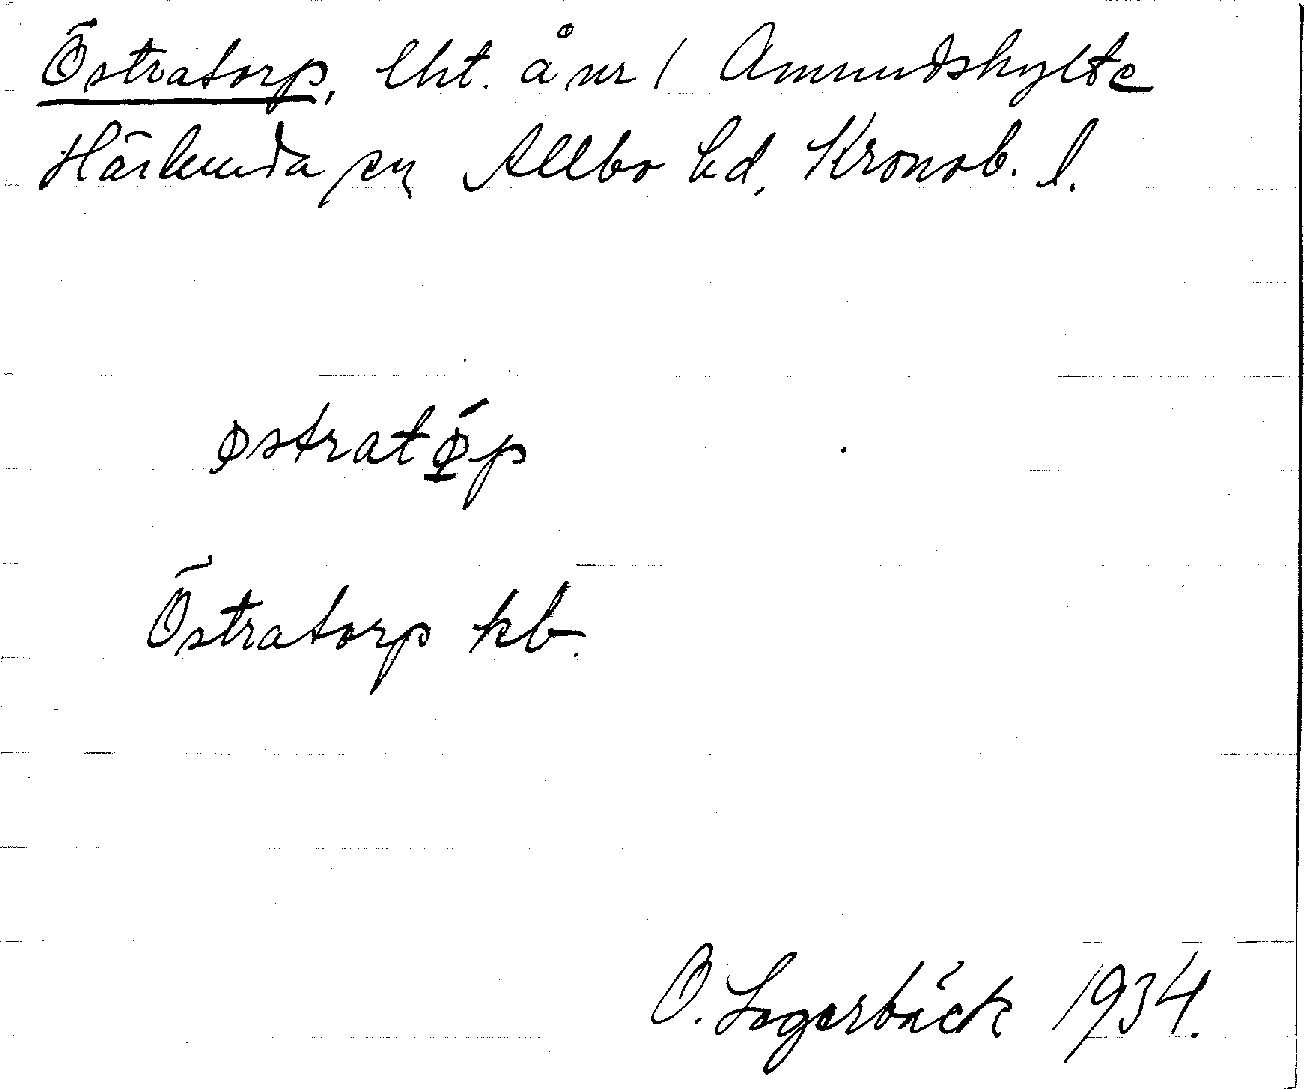 Östratorp, lht. å nr 1 Amundshylte
Härlunda sn Allbo hd, Kronob. l.
østratǿp
Östratorp kb.
O. Lagerbäck 1934.